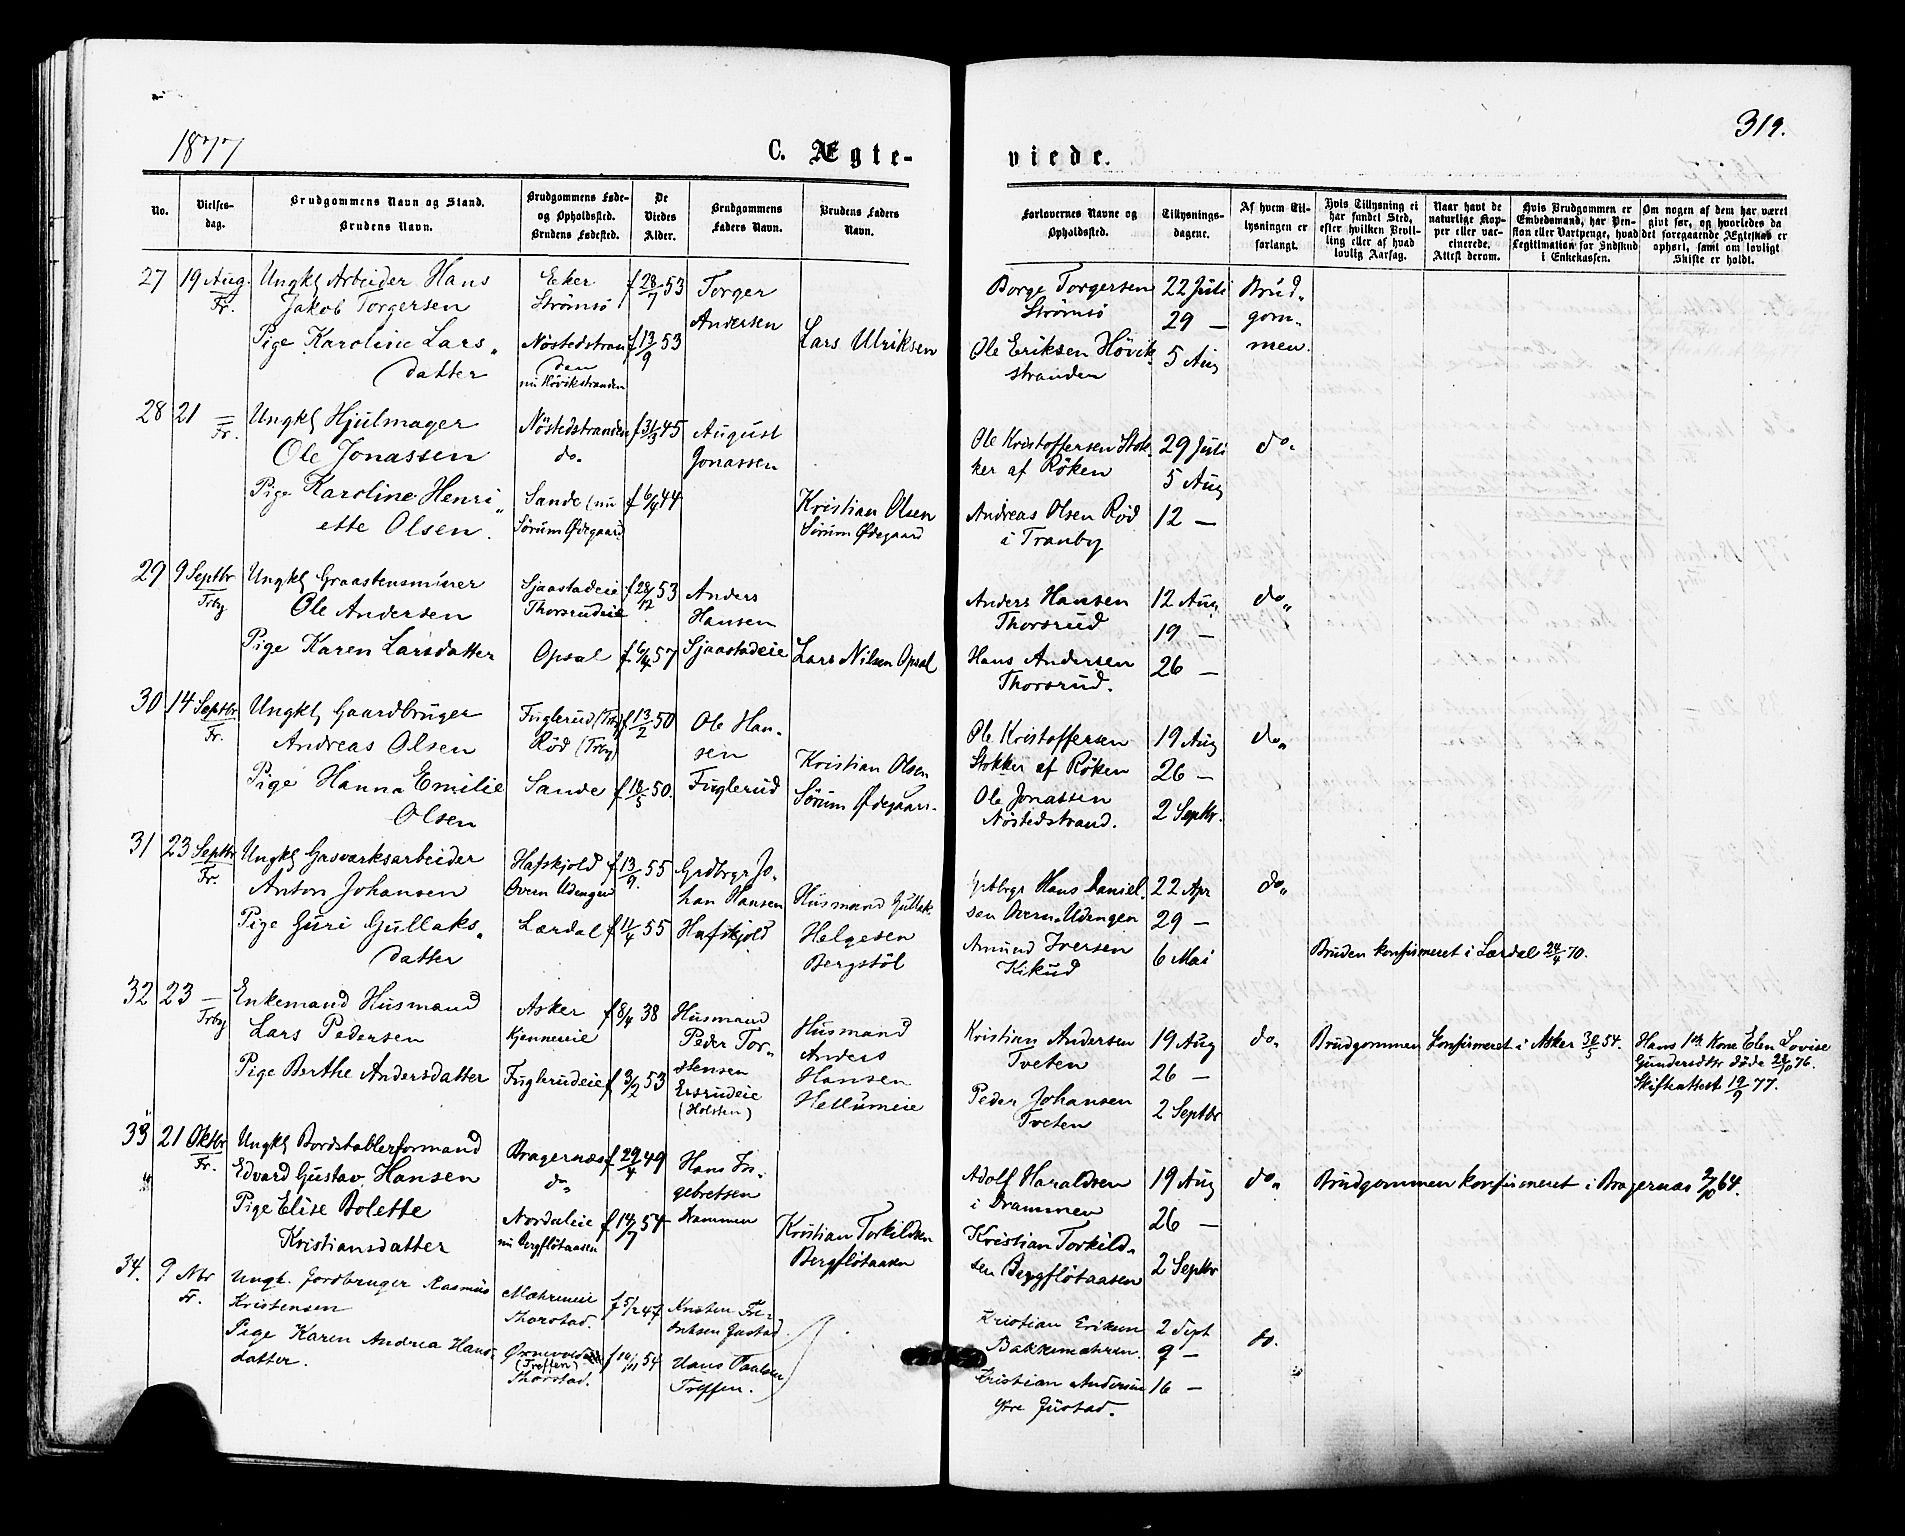 1877
C. Ægte-
viede.
319.
No.
Vielses-
dag.
Brudgommens Navn og Stand.
Brudens Navn.
Brudgommens Føde-
og Opholdssted.
Brudens Fødested.
De
Viedes
Alder.
Brudgommens
Faders Navn.
Brudens Faders
Navn.
Forlovernes Navne og
Opholdssted.
Tillysnings-
dagene.
Af hvem Til-
lysningen er
forlangt.
Hvis Tillysning ei
har fundet Sted,
efter hvilken Bevil-
ling eller af hvad
lovlig Aarsag.
Naar havt de
naturlige Kop-
per eller vac-
cinerede.
Attest derom.
Hvis Brudgommen er
Embedsmand, har Pen-
sion eller Vartpenge, hvad
Legitimation for Indskud
i Enkekassen.
Om nogen af dem har været
givt før, og hvorledes da
det foregaaende Ægteskab er
ophørt, samt om lovligt
Skifte er holdt.
27
19 Aug.
Fr.
Ungkl Arbeider Hans
Jakob Torgersen
Pige Karoline Lars„
datter
Eker
Strömsö
Nöstedstran
den
nu Hövikstranden
f 28/7 53
f 13/9 53
Torger
Andersen
Lars Ulriksen
Borge Torgersen
Strömsö
Ole Eriksen Hövik
stranden
22 Juli
29 —
5 Aug
Brud„
gom„
men.
28
21 —
Fr.
Ungkl Hjulmager
Ole Jonassen
Pige Karoline Henri„
ette Olsen.
Nöstedstranden
do
Sande (nu
Sörum Ødegaard
f 31/3 45
f 6/4 44
August
Jonassen
Kristian Olsen
Sörum Ødegaard
Ole Kristoffersen Stok
ker af Röken
Andreas Olsen Röd
i Tranby
29 Juli
5 Aug
12 —
do.
29
9 Septbr
Trby
Ungkl Graastensminer
Ole Andersen
Pige Karen Larsdatter
Sjaastadeie
Thorsrudeie
Opsal
f 28/12 53
f 6/4 57
Anders
Hansen
Sjaastadeie
Lars Nilsen Opsal
Anders Hansen
Thorsrud
Hans Andersen
Thorsrud.
12 Aug
19 —
26 —
do„
30
14 Septbr
Fr.
Ungkl Gaardbruger
Andreas Olsen
Pige Hanna Emilie
Olsen
Fuglerud (Trby)
Röd (Trby)
Sande
f 13/2 50
f 18/5 50.
Ole Han„
sen
Fuglerud
Kristian Olsen
Sörum Ødegaard.
Ole Kristoffersen
Stokker af Röken
Ole Jonassen
Nöstedstrand.
19 Aug
26 —
2 Septbr.
do„
31
23 Septbr
Fr.
Ungkl Gasværksarbeider
Anton Johansen
Pige Guri Gullaks„
datter
Hafskjold
Overn Udengen
Lærdal
f 13/9. 55
f 11/4 55
Grdbrgr Jo„
han Hansen
Hafskjold
Husmand Gullak
Helgesen
Bergstöl
Grdbrgr Hans Daniel„
sen Overn„Udengen
Amund Iversen
Kikud
22 Apr
29 —
6 Mai
do„
Bruden konfirmeret i Lærdal 24/4 70.
32
23 —
Trby
Enkemand Husmand
Lars Pedersen
Pige Berthe Andersdatter
Asker
Kjennereie
Fuglerudeie
f 8/4 38
f 3/2 53
Husmand
Peder Tor„
stensen
Ersrudeie
(Holsten)
Husmand
Anders
Hansen
Hellumeie
Kristian Andersen
Tveten
Peder Johansen
Tveten
19 Aug
26 —
2 Septbr
do„
Brudgommen konfirmeret i Asker 30/5 54.
Hans 1ste Kone Elen Lovise
Gundersdtr döde 28/10 76.
Skifteattest 19/9 77.
33
21 Oktbr
Fr.
Ungkl Bordstablerformand
Edvard Gustav Hansen
Pige Elise Bolette
Kristiansdatter
Bragernæs
do„
Nordaleie
nu Bergflötaasen
f 29/4 49
f 14/7 54
Hans In„
gebretsen
Drammen
Kristian Torkildsen
Bergflötaasen
Adolf Haraldsen
i Drammen
Kristian Torkild„
sen Bergflötaasen
19 Aug
26 —
2 Septbr
do„
Brudgommen konfirmeret i Bragernæs 2/10 64.
34.
9 Nbr
Fr.
Ungk. Jordbruger Rasmus
Kristensen
Pige Karen Andrea Hans„
datter.
Mæhreneie
Thorstad.
(Treffen)
Thorstad.
f 5/12 47
f 10/11 54
Kristen
Gustad.
Hans Paalsen
Treffen.
Kristian Eriksen
Bakkemæhren.
Kristian Andersen
Yttre Gustad.
2 Sept
9 —
16 —
do.